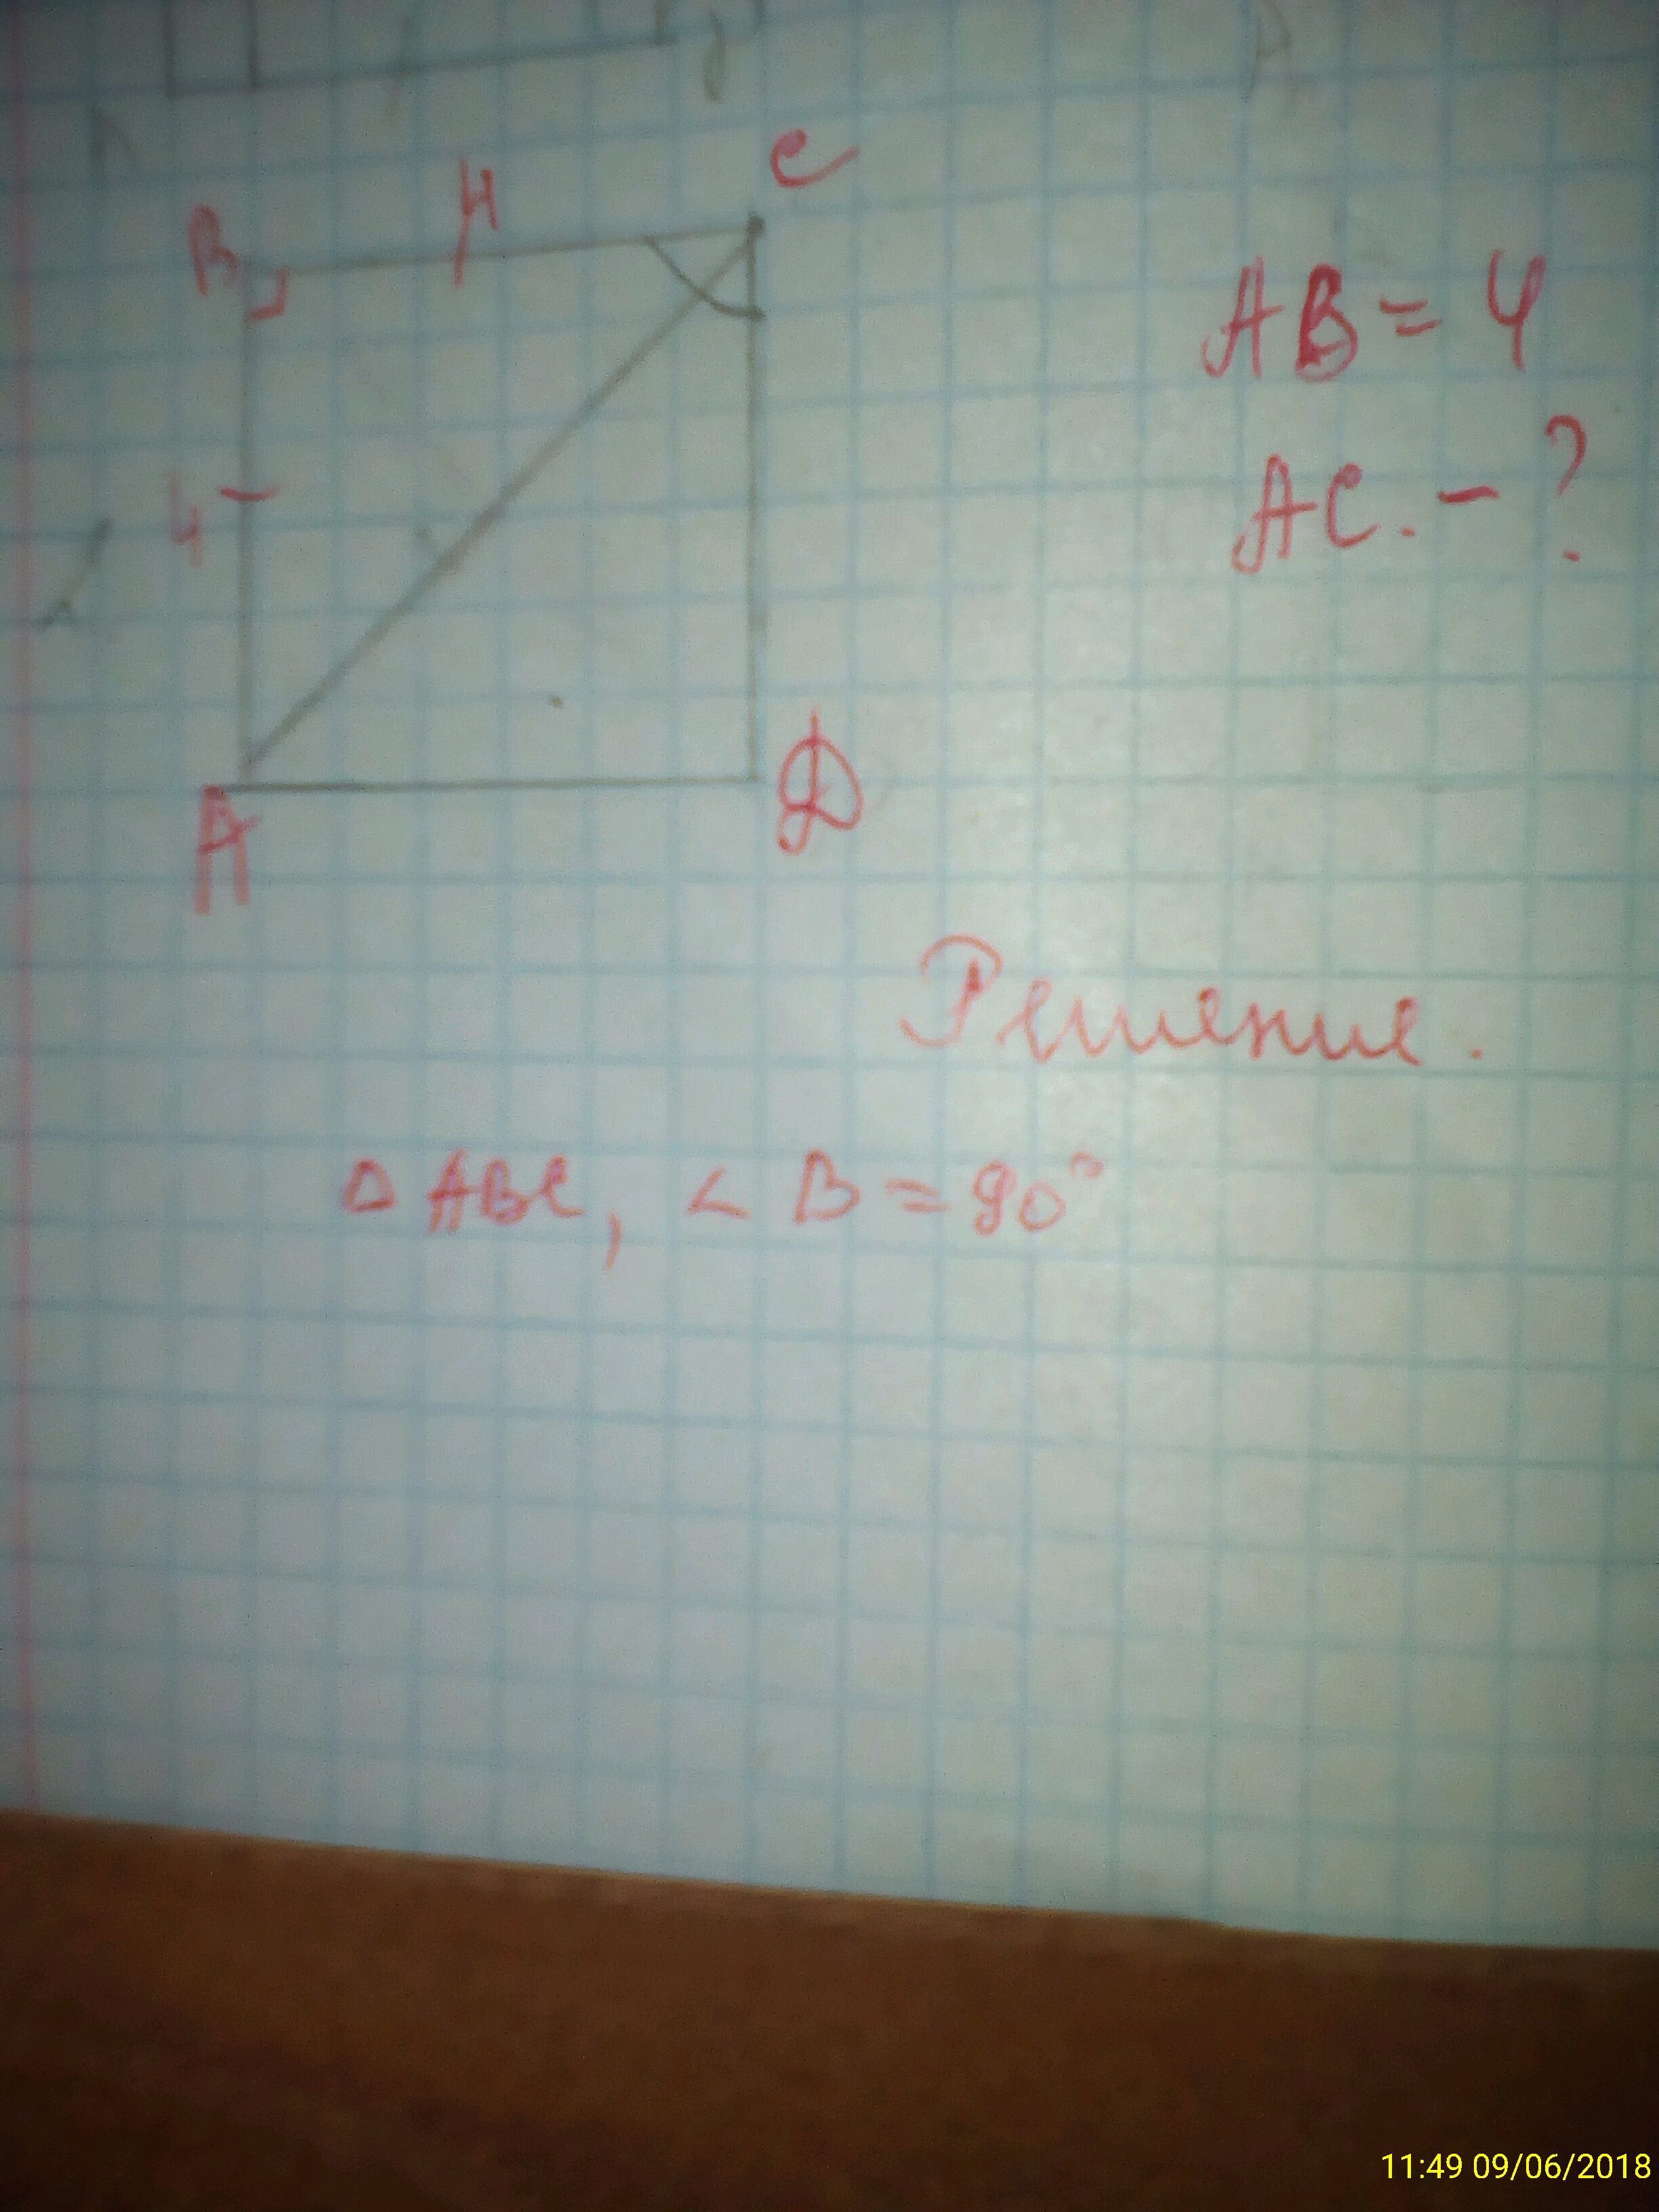 C
B 4
AB = 4
4
AC. - ?
A
D
Решение.
△ ABC, < B = 90°
11:49 09/06/2018